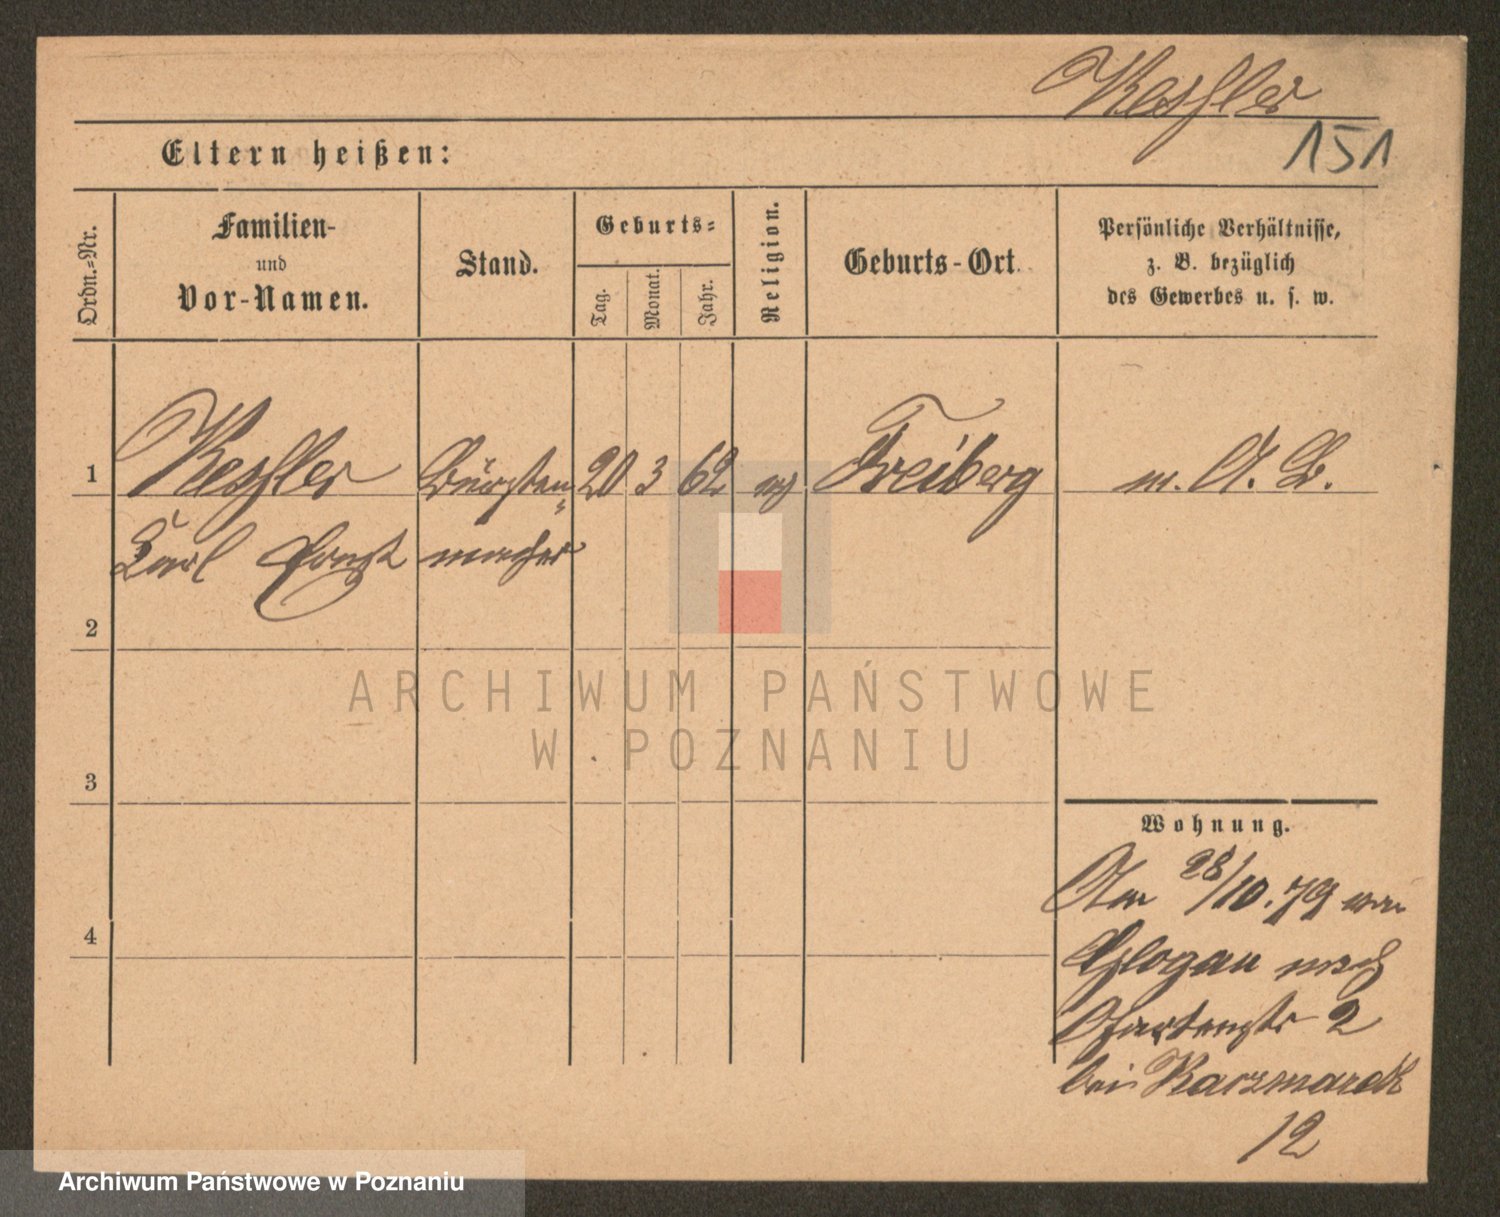 Keßler
151
Eltern heißen:
Ordn.-Nr.
Familien-
und
Vor-Namen.
Stand.
Geburts-
Tag.
Monat.
Jahr.
Religion.
Geburts-Ort.
Persönliche Verhältnisse,
z. B. bezüglich
des Gewerbes u. s. w.
1 Keßler Bürsten- 20 3 62 Freiberg m. A. B.
Carl Ernst macher
2
3
4
Wohnung.
Am 28/10.79 von
Glogau nach
Gartenstr 2
bei Kaczmarek
12
ARCHIWUM PAŃSTWOWE
W POZNANIU
Archiwum Państwowe w Poznaniu